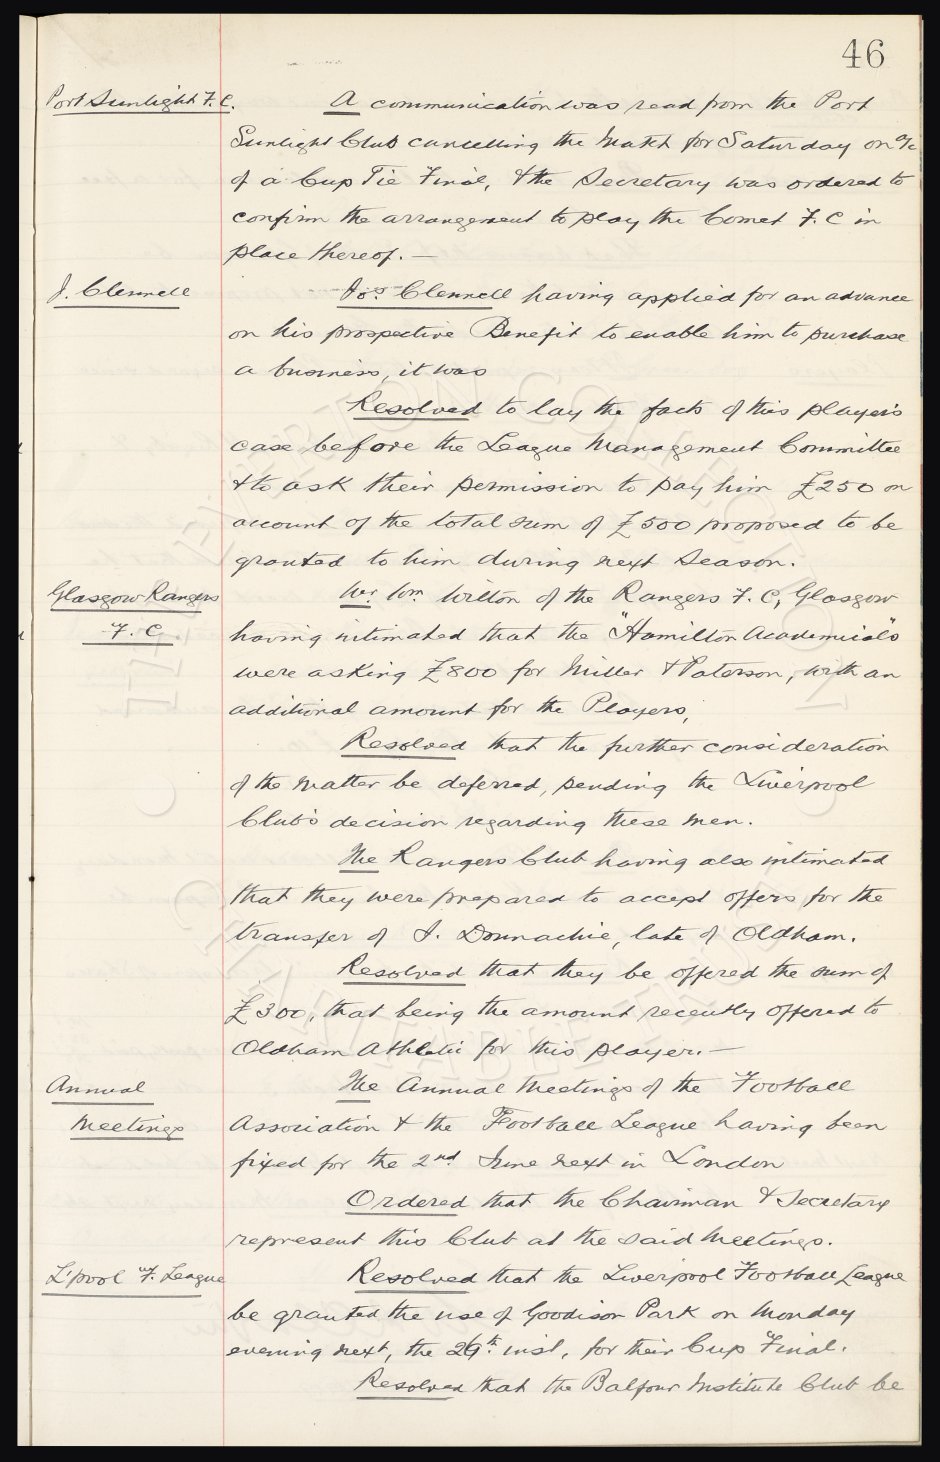 46
Port Sunlight F.C.
A communication was read from the Port
Sunlight Club cancelling the Match for Saturday on a/c
of a Cup Tie Final, & the Secretary was ordered to
confirm the arrangement to play the Comet F.C in
place thereof. —
J. Clennell
Jos. Clennell having applied for an advance
on his prospective Benefit to enable him to purchase
a business, it was
Resolved to lay the facts of this player's
case before the League Management Committee
& to ask their permission to pay him £250 on
account of the total sum of £500 proposed to be
granted to him during next Season.
Glasgow Rangers
F. C.
Mr. Wm. Wilton of the Rangers F. C, Glasgow
having intimated that the "Hamilton Academicals
were asking £800 for Miller & Paterson, with an
additional amount for the Players,
Resolved that the further consideration
of the matter be deferred, pending the Liverpool
Club's decision regarding these men.
The Rangers Club having also intimated
that they were prepared to accept offers for the
transfer of J. Donnachie, late of Oldham.
Resolved that they be offered the sum of
£300, that being the amount recently offered to
Oldham Athletic for this player. —
Annual
Meetings
The Annual Meetings of the Football
Association & the Football League having been
fixed for the 2nd June next in London
Ordered that the Chairman & Secretary
represent this Club at the said Meetings.
L'pool F. League
Resolved that the Liverpool Football League
be granted the use of Goodison Park on Monday
evening next, the inst, for their Cup Final.
Resolved that the Balfour Institute Club be